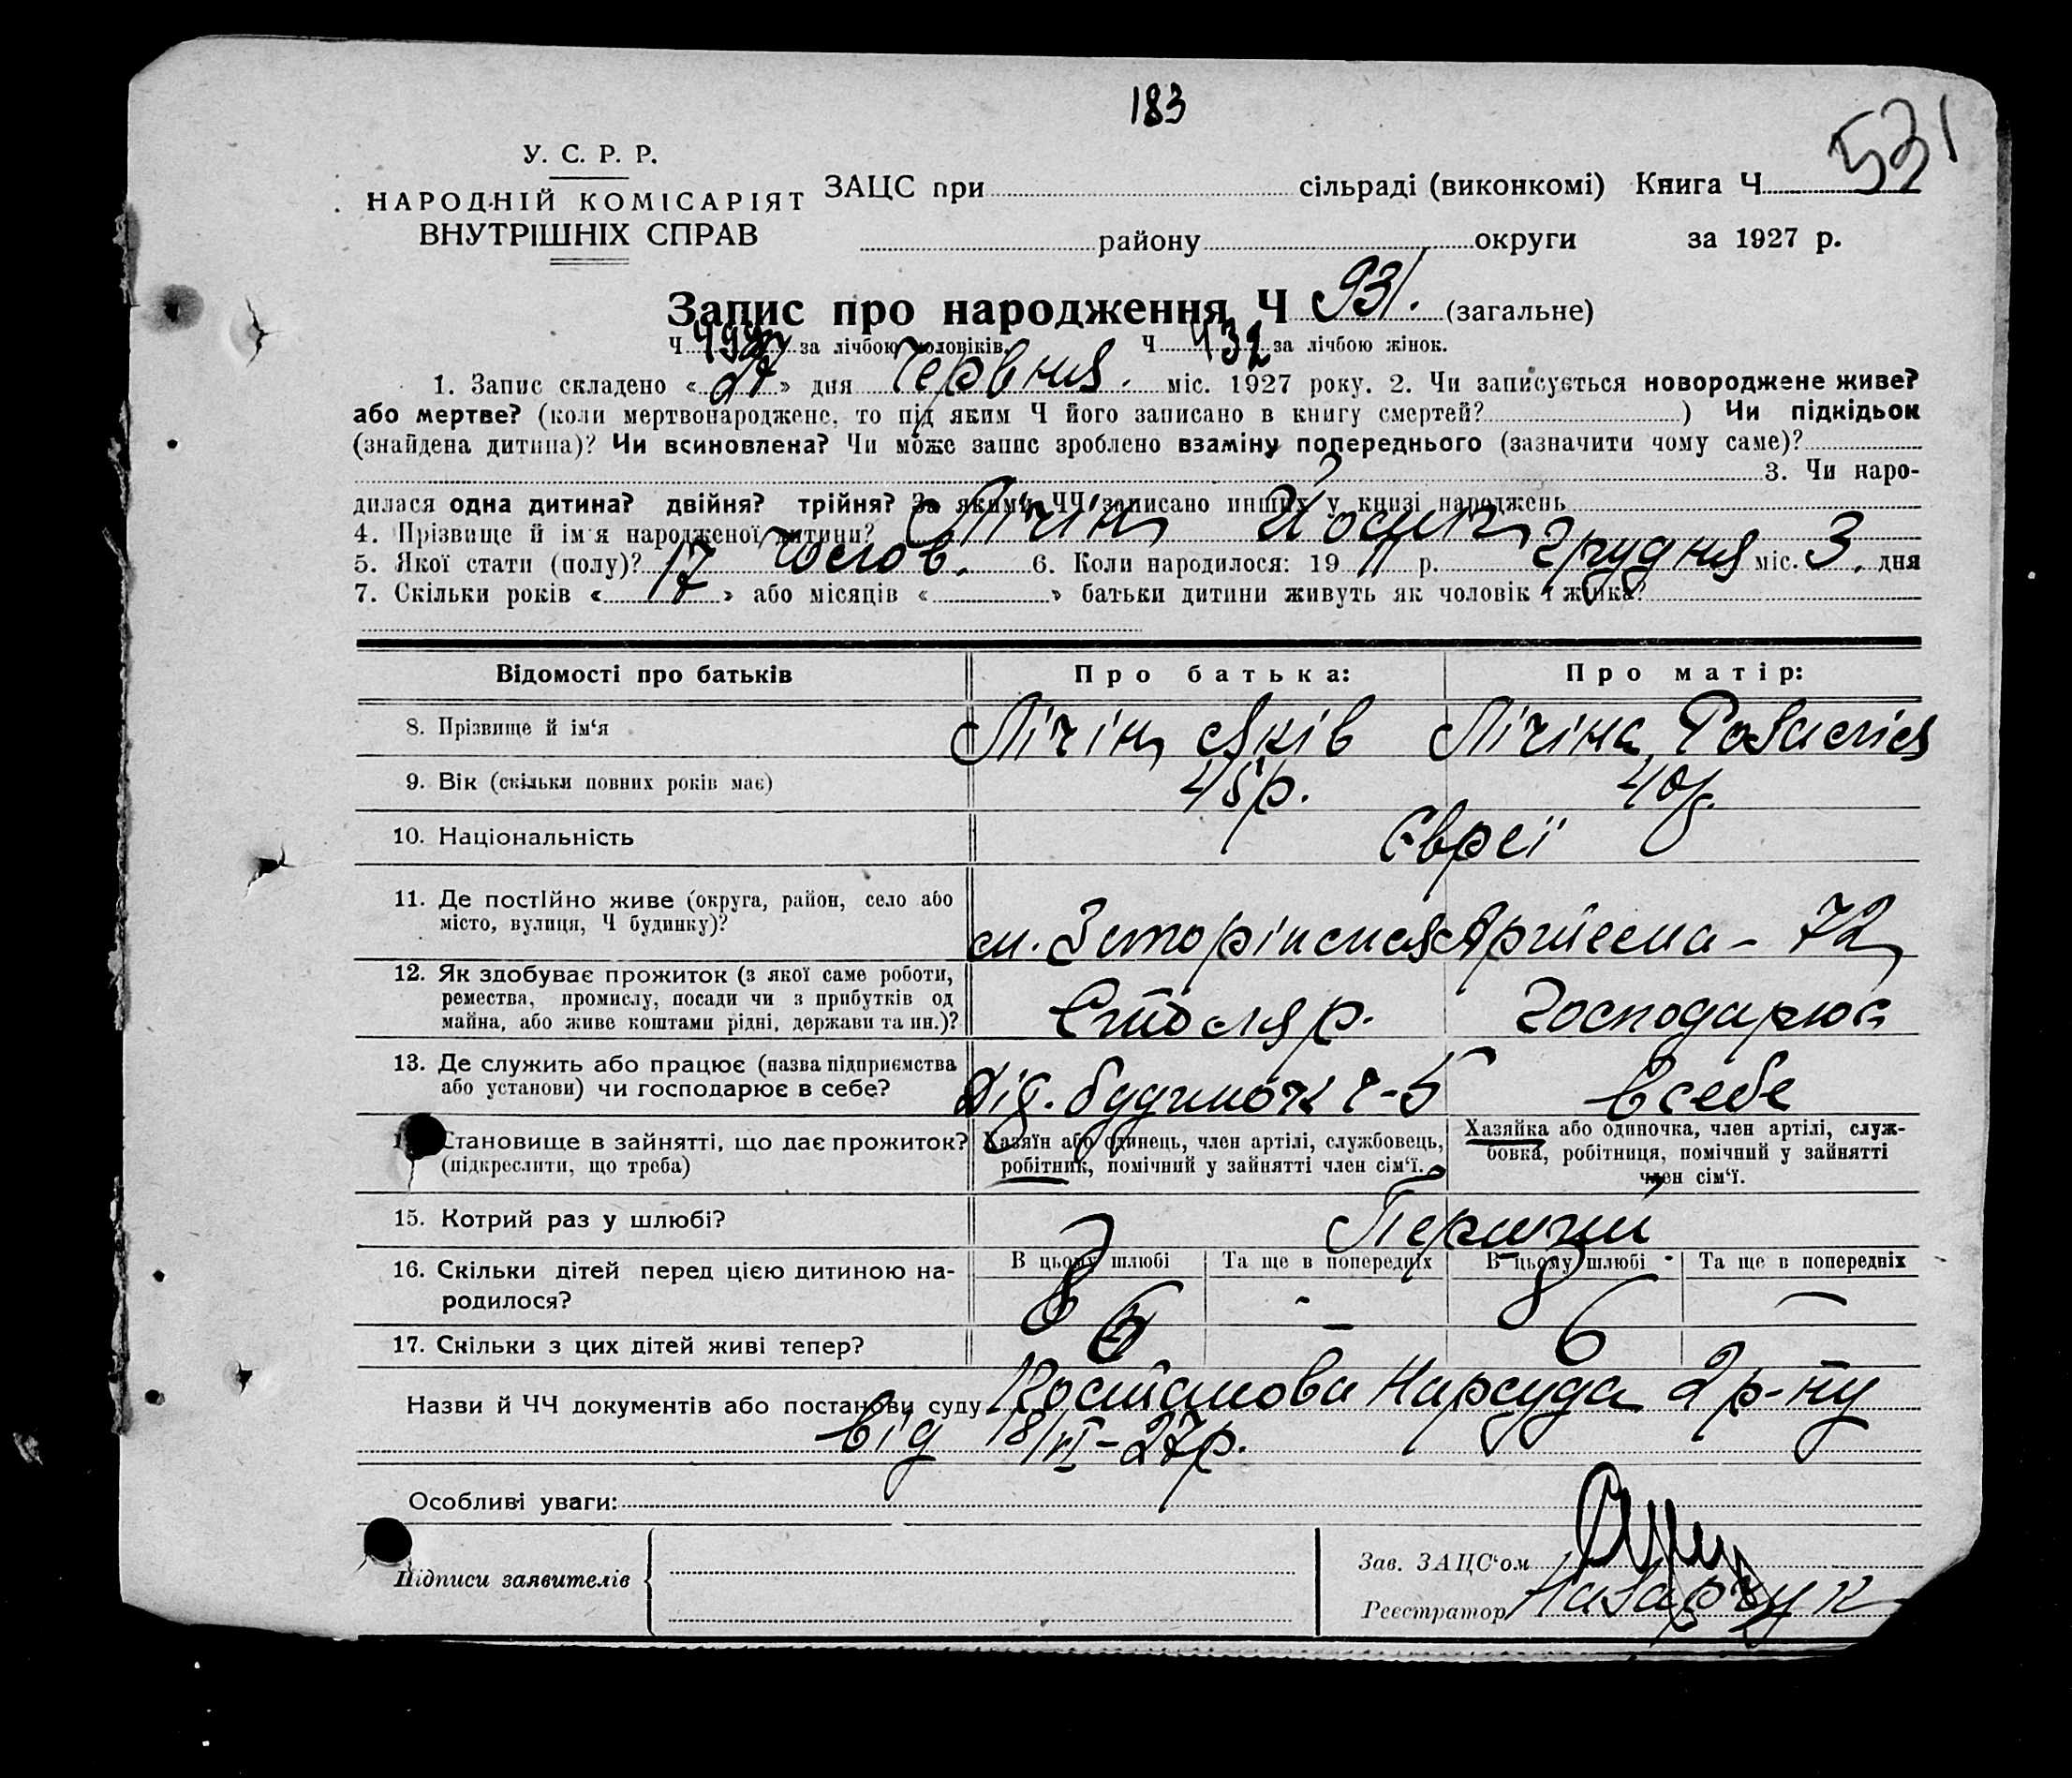 183
531
У. С. Р. Р.
НАРОДНІЙ КОМІСАРІЯТ
ВНУТРІШНІХ СПРАВ
ЗАЦС при сільраді (виконкомі) Книга Ч
району округи за 1927 р.
Запис про народження Ч 931. (загальне)
Ч 499 за лічбою чоловіків. Ч 432 за лічбою жінок.
1. Запис складено « 27 » дня Червня. міс. 1927 року. 2. Чи записується новороджене живе?
або мертве? (коли мертвонароджене, то під яким Ч його записано в книгу смертей? ) Чи підкідьок
(знайдена дитина)? Чи всиновлена? Чи може запис зроблено взаміну попереднього (зазначити чому саме)?
3. Чи наро-
дилася одна дитина? двійня? трійня? За якими ЧЧ записано инших у книзі народжень
4. Прізвище й ім'я народженої дитини? Лічін Йосип
5. Якої стати (полу)? чолов. 6. Коли народилося: 19 11 р. грудня міс. 3. дня
7. Скільки років « 17 » або місяців « » батьки дитини живуть як чоловік і жінка?
Відомості про батьків Про батька: Про матір:
8. Прізвище й ім'я Лічін Яків Лічіна Розалія
9. Вік (скільки повних років має) 45 р. 40 р.
10. Національність Євреї
11. Де постійно живе (округа, район, село або
місто, вулиця, Ч будинку)? Артема - 72
12. Як здобуває прожиток (з якої саме роботи,
ремества, промислу, посади чи з прибутків од
майна, або живе коштами рідні, держави та ин.)? Столяр. Господарює
13. Де служить або працює (назва підприємства
або установи) чи господарює в себе? Дід. будинок ч-5 в себе
Становище в зайнятті, що дає прожиток?
(підкреслити, що треба)
Хазяїн або одинець, член артілі, службовець,
робітник, помічний у зайнятті член сім'ї.
Хазяйка або одиночка, член артілі, служ-
бовка, робітниця, помічний у зайнятті
член сім'ї.
15. Котрий раз у шлюбі? Перший
В цьому шлюбі Та ще в попередніх В цьому шлюбі Та ще в попередніх
16. Скільки дітей перед цією дитиною на-
родилося? 8 - 8 —
17. Скільки з цих дітей живі тепер? 6 — 6
Назви й ЧЧ документів або постанови суду Постанова Нарсуда 2 р-ну
від 18/VI-27 р.
Особливі уваги:
Підписи заявителів
Зав. ЗАЦС'ом
Реєстратор Назарчук